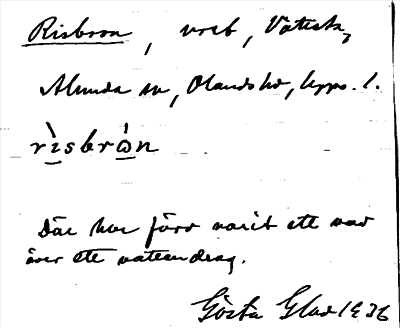 Risbron, vret, Vätesta,
Alunda sn, Olands hd, Upps. l.
rìsbrὼn
Där har förr varit ett vad
över ett vattendrag.
Gösta Glad 1936